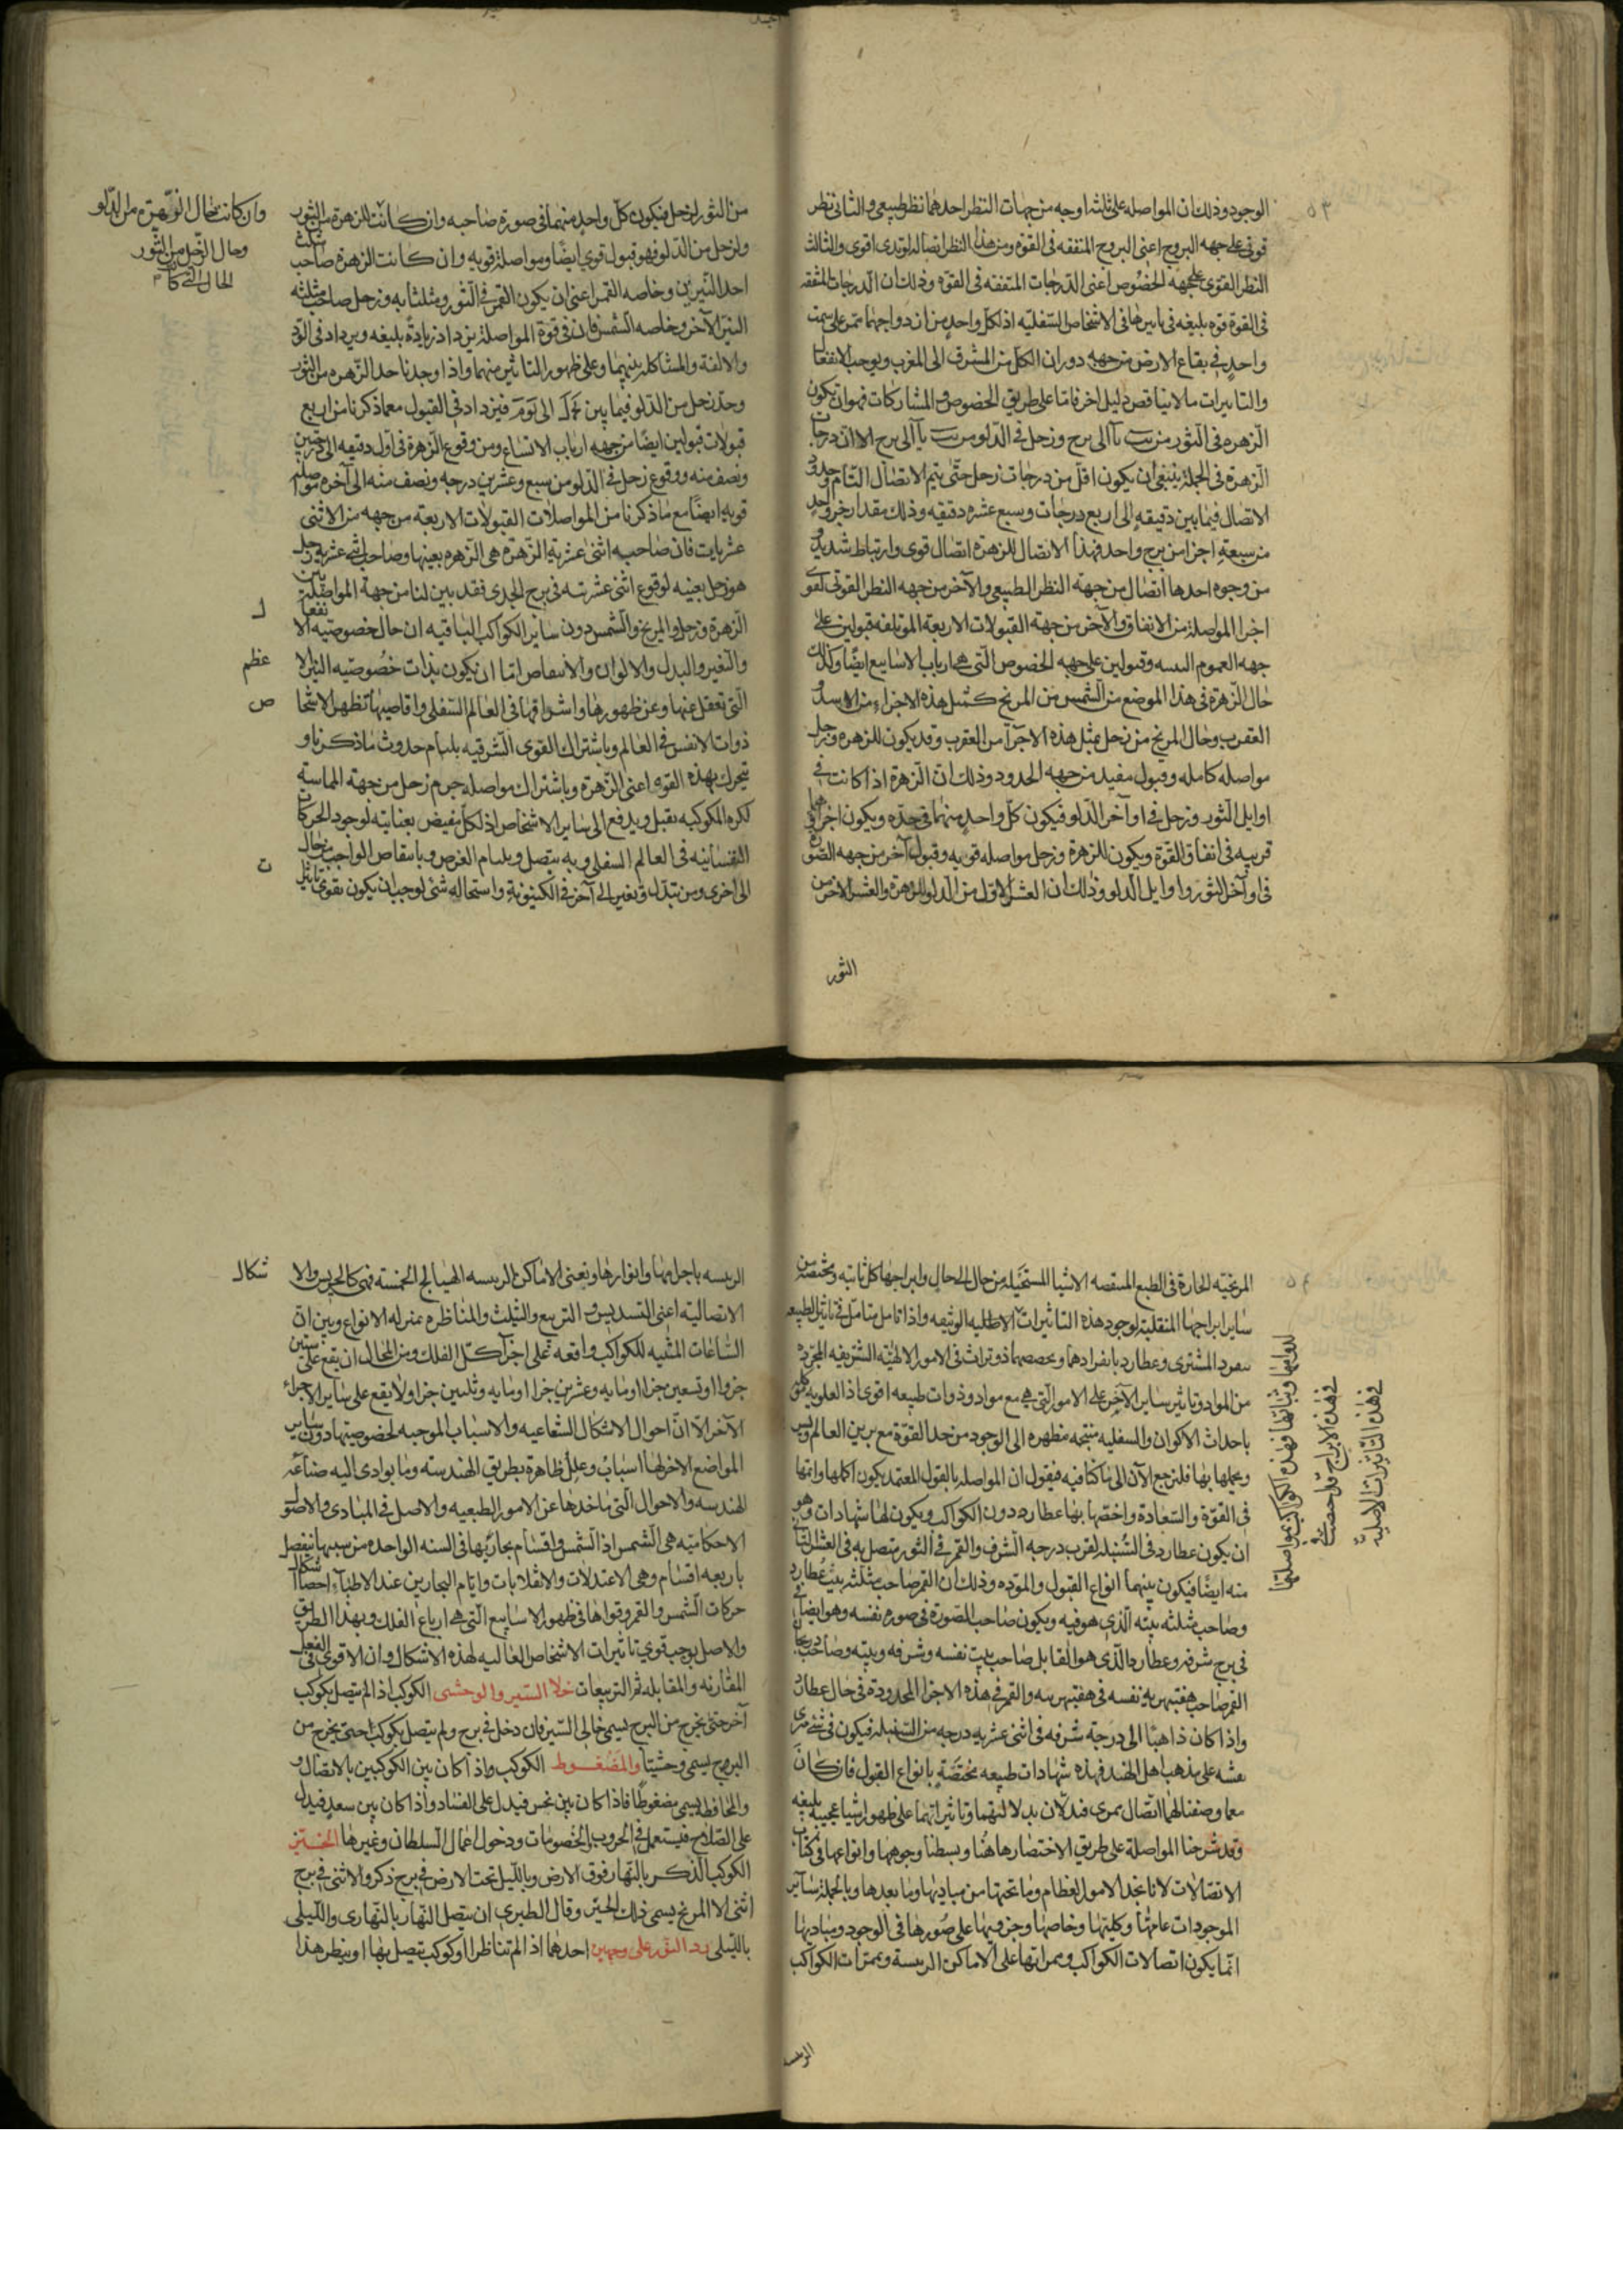 ٥٣
الوجود وذلك ان المواصله على ثلثه اوجه من جهات النظر احدهما نظر طبيعى والثانى نظر
قوتى على جهه البروج اعنى البروج المتفقه فى القوة ومن هذا النظر اتصاله لوتدى اقوى والثالث
النظر القوى على جهه الخصوص اعنى الدرجات المتفقه فى القوه وذلك ان الدرجات المتفقه
فى القوة قوه بليغه فى تاثيرها فى الاشخاص السفليه اذ لكل واحد من ازدواجهما ممر على سمت
واحد فى بقاع الارض من جهه دوران الكل من المشرق الى المغرب ويوجب الانفعا
والتاثيرات ما لا يناقص دليل اخر فاما على طريق الخصوص والمشاركات فهو ان تكون
الزهره فى الثور من الى برج وزحل فى الدلو من الى برج الا ان درجات
الزهرة فى الجملة ينبغى ان يكون اقل من درجات زحل حتى يتم الاتصال التام وحدود
الاتصال فيما بين دقيقه الى اربع درجات وسبع عشره دقيقه وذلك مقدار جزء واحد
من سبعة اجزا من برج واحد فهذا الاتصال للزهرة اتصال قوى وارتباط شديد
من وجوه احدها اتصال من جهة النظر الطبيعى والآخر من جهه النظر القوتى لقو
اجزا المواصلة من الاتفاق والآخر من جهة القبولات الاربعة الموتلفه قبولين على
جهه العموم وقبولين على جهه الخصوص التى هما ارباب الاسابيع ايضا وكذلك
حال الزهرة فى هذا الموضع من الشمس من المريخ كمثل هذه الاجزاء من الاسد و
العقرب وحال المريخ من زحل بمثل هذه الاجزآ من العقرب وقد يكون للزهره وزحل
مواصله كامله وقبول مفيد من جهه الحدود وذلك ان الزهرة اذا كانت فى
اوايل الثور وزحل فى اوآخر الدلو فيكون كل واحد منهما فى حده ويكون اجزاهما
قريبه فى اتفاق القوة ويكون للزهرة وزحل مواصله قويه وقبول آخر من جهه الصورة
فى اوآخر الثور واوايل الدلو وذلك ان العشر الاول من الدلو للزهرة والعشر الاخر من
الثور
من الثور لزحل فيكون كل واحد منهما فى صورة صاحبه وان كانت للزهرة من الثور
ولزحل من الدلو فهو قبول قوى ايضا ومواصلة قويه وان كانت الزهرة صاحب مثلث
احد النيرين وخاصه القمر اعنى ان يكون القمر فى الثور ومثلثا به وزحل صاحب مثلثه
النير الآخر وخاصه الشمس فان فى قوة المواصلة يزداد زيادة بليغه ويزداد فى الود
والالفة والمشاكله بينهما وعلى ظهور التاثير منهما واذا وجدنا حد الزهره من الثور
وحد زحل من الدلو فيما بين الى فيزداد فى القبول مع ما ذكرنا من اربع
قبولات قبولين ايضا من جهه ارباب الاتساع ومن وقوع الزهرة فى اول دقيقه الى درجتين
ونصف منه ووقوع زحل فى الدلو من سبع وعشرين درجه ونصف منه الى آخره مواصله
قويه ايضا مع ما ذكرنا من المواصلات القبولات الاربعة من جهه من الاثنى
عشريات فان صاحبه اثنى عشرية الزهرة هى الزهره بعينها وصاحب اثنى عشرية زحل
هو زحل بعينه لوقوع اثنى عشرته فى برج الجدى فقد بين لنا من جهة المواصلة بين
الزهرة وزحل والمريخ والشمس دون ساير الكواكب الباقيه ان حال خصوصيه الانفعا
والتغير والبدل والالوان والانتقاص اما ان يكون بذات خصوصيه النير الا
التى تعقل عنها وعن ظهورها واشراقها فى العالم السفلى واقاصيها تظهر الاشخا
ذوات الانفس فى العالم وباشتراك القوى الشرقيه بلسام حدوث ما ذكرنا و
يتحرك بهذه القوه اعنى الزهرة وباشتراك مواصله جرم زحل من جهة المماسة
لكره الكوكبه تقبل ويدفع الى ساير الاشخاص اذ لكل بفيض بعنايته لوجود الحركات
النفسانيه فى العالم السفلى وبه يتصل ويلسام الغرض وبانتقاص الواجب من حال
الى اخرى ومن تبدل وتغير الى آخر فى الكينونة واستحاله شئ لوجب ان يكون بقوتى تاثير
وان كانت بحال الزهرة من الدلو
وحال الزحل من الثور
الحال التى كا
ل
عظم
ص
ت
٥٤
المريخيه الحارة فى الطبع المنقصه الاشيا المستحيله من حال الى حال وابراجها كل ثابته ومختصه من
ساير ابراجها المنقلبة لوجود هذه التاثيرات الاصليه الوثيقه واذا تامل متامل فى تاثير الطبيعه
تفرد المشترى وعطارد بانفرادها وبخصصهما ذو تراث فى الامور الالهيه الشريفه المجرده
من المواد وتاثير ساير الآخر على الامور التى هى مع مواد وذوات طبيعه اقوى اذ العلويه
باحداث الاكوان والسفليه منتجه مظهره الى الوجود من حد القوة مع بر بين العالم
ويحملها بها فلنرجع الآن الى ما كنا فيه فيقول ان المواصله بالقول المعتمد يكون اكملها واتمها
فى القوة والسعادة واخصها بها عطارد دون الكواكب ويكون لها شهادات وهو
ان يكون عطارد فى السنبله لقرب درجه الشرف والقمر فى الثور متصل به فى العشر الثانى
منه ايضا فيكون بينهما انواع القبول والموده وذلك ان القمر صاحب مثلثه بيت عطارد
وصاحب مثلثه بيته الذى هو فيه ويكون صاحب الصورة فى صوره نفسه وهو ايضا فى
فى برج شرفه وعطارد الذى هو القابل صاحب بيت نفسه وشرفه وبيته وصاحب درجا
القمر صاحب هفتبهريه نفسه فى هفتبهريه والقمر فى هذه الاجزا المحدودة فى حال عطارد
واذا كان ذاهبا الى درجة شرفه فى اثنى عشريه درجه من السنبله فيكون فى
نفسه على مذهب اهل الهند فهذه شهادات طبيعه مختصة بانواع القبول فان كان
مع ما وصفنا لهما اتصال بمرى فيدلان بدلالتهما وتاثيراتهما على ظهور اشيا عجيبه بليغه
وقد شرحنا المواصلة على طريق الاختصار هاهنا وبسطنا وجوهها وانواعها فى كتاب
الاتصالات لاتاتخذ الامور العظام وما تحتها من مباديها وما بعدها وبالجملة ساير
الموجودات عامتها وكليتها وخاصها وجزويها على صورها فى الوجود ومباديها
انما يكون اتصالات الكواكب وممراتها على الاماكن الريسة وممرات الكواكب
الريسه
لدوامها وثباتها فهذه الكواكب بمواصلتها
فى هذه الابراج قد خصت
فى هذه التاثيرات الاصلية
الريسه باجرامها وانوارها ونعنى الاماكن الريسه الهيالج الخمسة فهى كالجرس والا
الاتصاليه اعنى التسديس والتربيع والتثليث والمناظره بمنزله الانواع وبين ان
الشاعات المثنيه للكواكب واقعه على اجزآ كل الفلك ومن المحال ان يقع على ستين
جزوا او تسعين جزا او مايه وعشرين جزا او مايه وثلثين جزا ولا يقع على ساير الاجزاء
الآخر الا ان احوال الاشكال الشعاعيه والاسباب الموجبه لخصوصيتها دون ساير
المواضع الاخر لها اسباب وعلل ظاهرة بطريق الهندسه وما يوادى اليه صناعه
الهندسه والاحوال التى ناخذها عن الامور الطبيعيه والاصل فى المبادى والاصو
الاحكاميه هى الشمس اذ الشمس واقسام مجاريها فى السنه الواحده من سببها تنفصل
باربعه اقسام وهى الاعتدلات والانقلابات وايام البحارين عند الاطبآء احصا
حركات الشمس والقمر وقواها فى ظهور الاسابيع التى هى ارباع الفلك وبهذا الطريق
والاصل يوجب قوى تاثيرات الاشخاص العاليه لهذه الاشكال وان الاقوى فى الفعل
المقارنه والمقابله ثم التربيعات خلا السير والوحشى الكوكب اذا لم يتصل بكوكب
آخر حتى يخرج من البرج يسمى خالى السير فان دخل فى برج ولم يتصل بكوكب حتى يخرج من
البروج يسمى وحشيا والمضغوط الكوكب واذا كان بين الكوكبين بالاتصال و
والمحافظه يسمى مضغوطا فاذا كان بين نحس فيدل على الفساد واذا كان بين سعد فيدل
على الصلاح فيستعمل فى الحروب والخصومات ودخول اعمال السلطان وغيرها الحيز
الكوكب الذكر بالنهار فوق الارض وبالليل تحت الارض فى برج ذكر والانثى فى برج
انثى الا المريخ يسمى ذلك الحيز وقال الطبرى ان يتصل النهار بالنهارى والليلى
بالليلى رد النور على وجهين احدهما اذا لم تناظرا او كوكب يتصل بهما او ينظر هذا
شكال